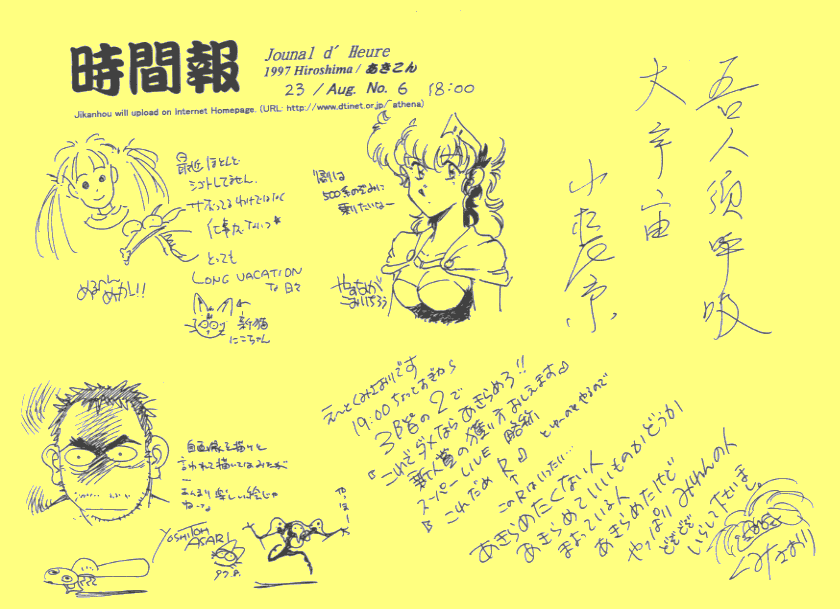 時間報
Jounal d' Heure
1997 Hiroshima / あきこん
23 / Aug. No. 6 18:00
Jikanhou will upload on Internet Homepage. (URL: http://www.dtinet.or.jp/~athena)
最近ほとんど
シゴトしてません.
サボってるわけではなく
仕事がないっ
とっても
LONG VACATION
な日々
めるへん
めいかし!!
新猫
にこちゃん
500系のぞみに
乗りたいなー
吾人須呼吸
大宇宙
自画像を描けと
言われて描いてはみたが
ー
あんまり楽しい絵じゃ
ねーな
YOSHITOH
ASARI
97.8.
やっほー
えーとくみさおりです
19:00ちょっとすぎから
3階の2で
『これでダメならあきらめろ!!
新人賞の獲り方おしえます♪
スーパーLIVE 略称
『これだめR』
というのをやるので
このRはいったい…
あきらめたくない人
あきらめていいものかどうか
まよっている人
あきらめたけど
やっぱりみれんの人
どぞどぞ
いらして下さいませ。
くみさおり